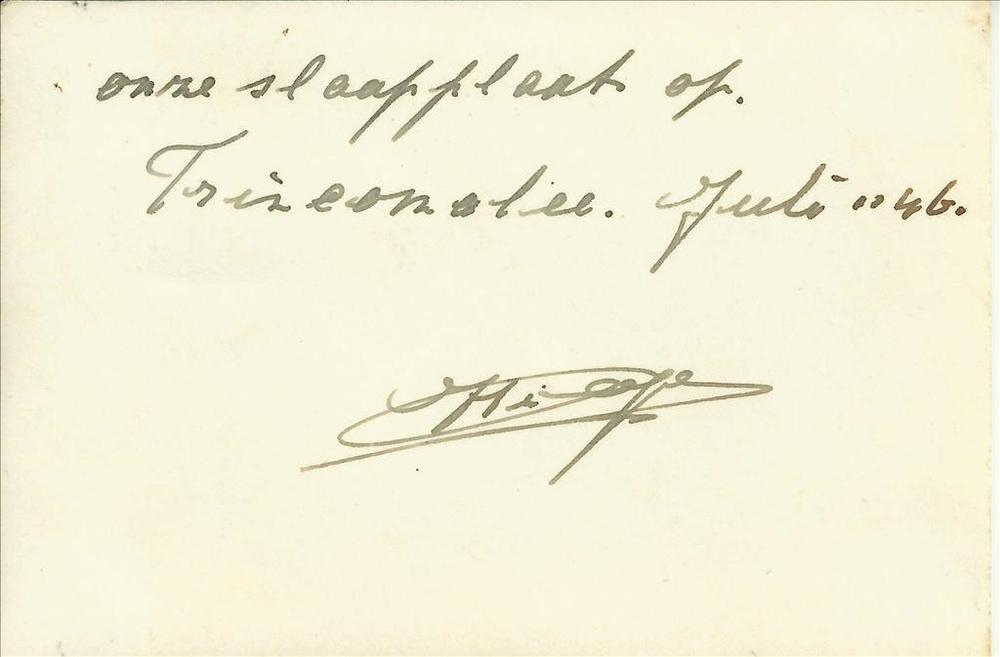 onze slaapplaats op.
Trinconalee. Juli "46.